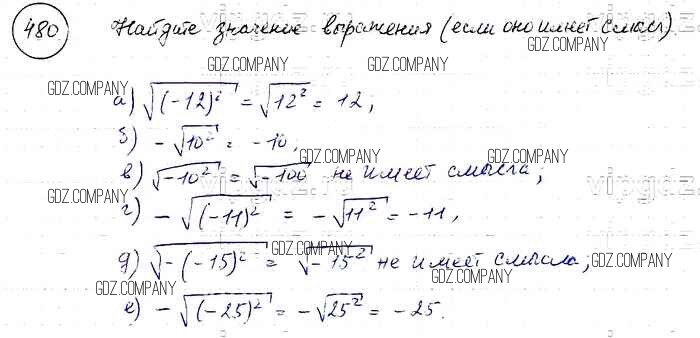 480 Найдите значение выражения (если оно имеет смысл)
GDZ.COMPANY GDZ.COMPANY GDZ.COMPANY
GDZ.COMPANY
а) √(-12)² = √12² = 12;
б) -√10² = -10;
GDZ.COMPANY GDZ.COMPANY
в) √-10² = √-100 не имеет смысла;
vipgdz vipgdz
GDZ.COMPANY GDZ.COMPANY
г) -√(-11)² = -√11² = -11;
GDZ.COMPANY
д) √-(-15)² = √-15² не имеет смысла;
GDZ.COMPANY GDZ.COMPANY GDZ.COMPANY
е) -√(-25)² = -√25² = -25.